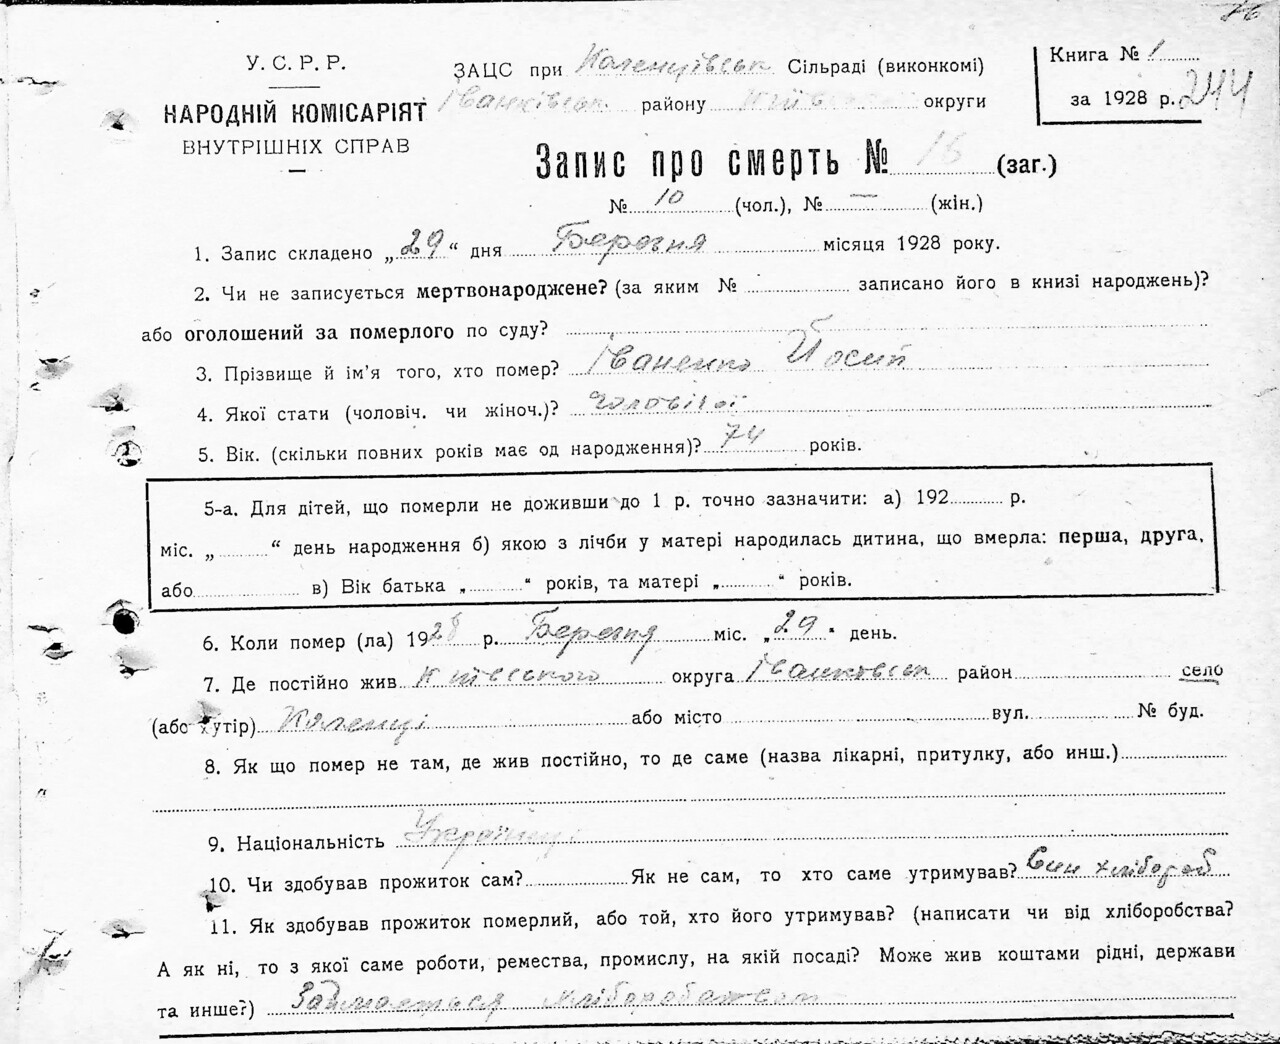 76
У. С. Р. Р.
НАРОДНІЙ КОМІСАРІЯТ
ВНУТРІШНІХ СПРАВ
ЗАЦС при Коленцівськ Сільраді (виконкомі)
Іванківськ. району Київської округи
Книга № 1
за 1928 р. 244
Запис про смерть № 15 (заг.)
№ 10 (чол.), № — (жін.)
1. Запис складено „29“ дня Березня місяця 1928 року.
2. Чи не записується мертвонароджене? (за яким № записано його в книзі народжень)?
або оголошений за померлого по суду?
3. Прізвище й ім'я того, хто помер? Іваненко Йосип
4. Якої стати (чоловіч. чи жіноч.)? Чоловічої
5. Вік. (скільки повних років має од народження)? 74 років.
5-а. Для дітей, що померли не доживши до 1 р. точно зазначити: а) 192 р.
міс. „ “ день народження б) якою з лічби у матері народилась дитина, що вмерла: перша, друга,
або в) Вік батька „ “ років, та матері „ “ років.
6. Коли помер (ла) 1928 р. Березня міс. „29“ день.
7. Де постійно жив Київського округа Іванковськ район село
(або хутір) Коленці або місто вул. № буд.
8. Як що помер не там, де жив постійно, то де саме (назва лікарні, притулку, або инш.)
9. Національність Українці
10. Чи здобував прожиток сам? Як не сам, то хто саме утримував? Син хлібороб
11. Як здобував прожиток померлий, або той, хто його утримував? (написати чи від хліборобства?
А як ні, то з якої саме роботи, ремества, промислу, на якій посаді? Може жив коштами рідні, держави
та инше?) Займається хліборобством